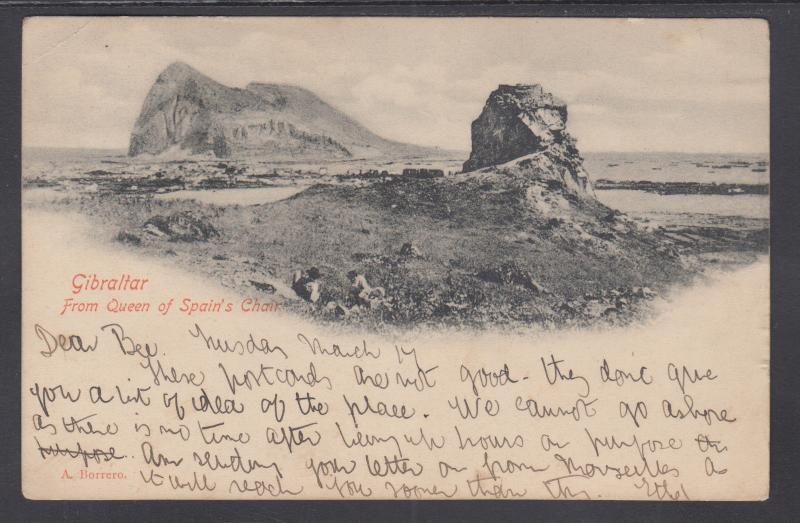 Gibraltar
From Queen of Spain's Chair
Dear Bee. March 17
These postcards are not good - they don't give
you a bit of idea of the place. We cannot go ashore
as there is no time after being up hours on purpose
purpose. Am sending your letter on from Marseilles as
it will reach you sooner than this.
A. Borrero.